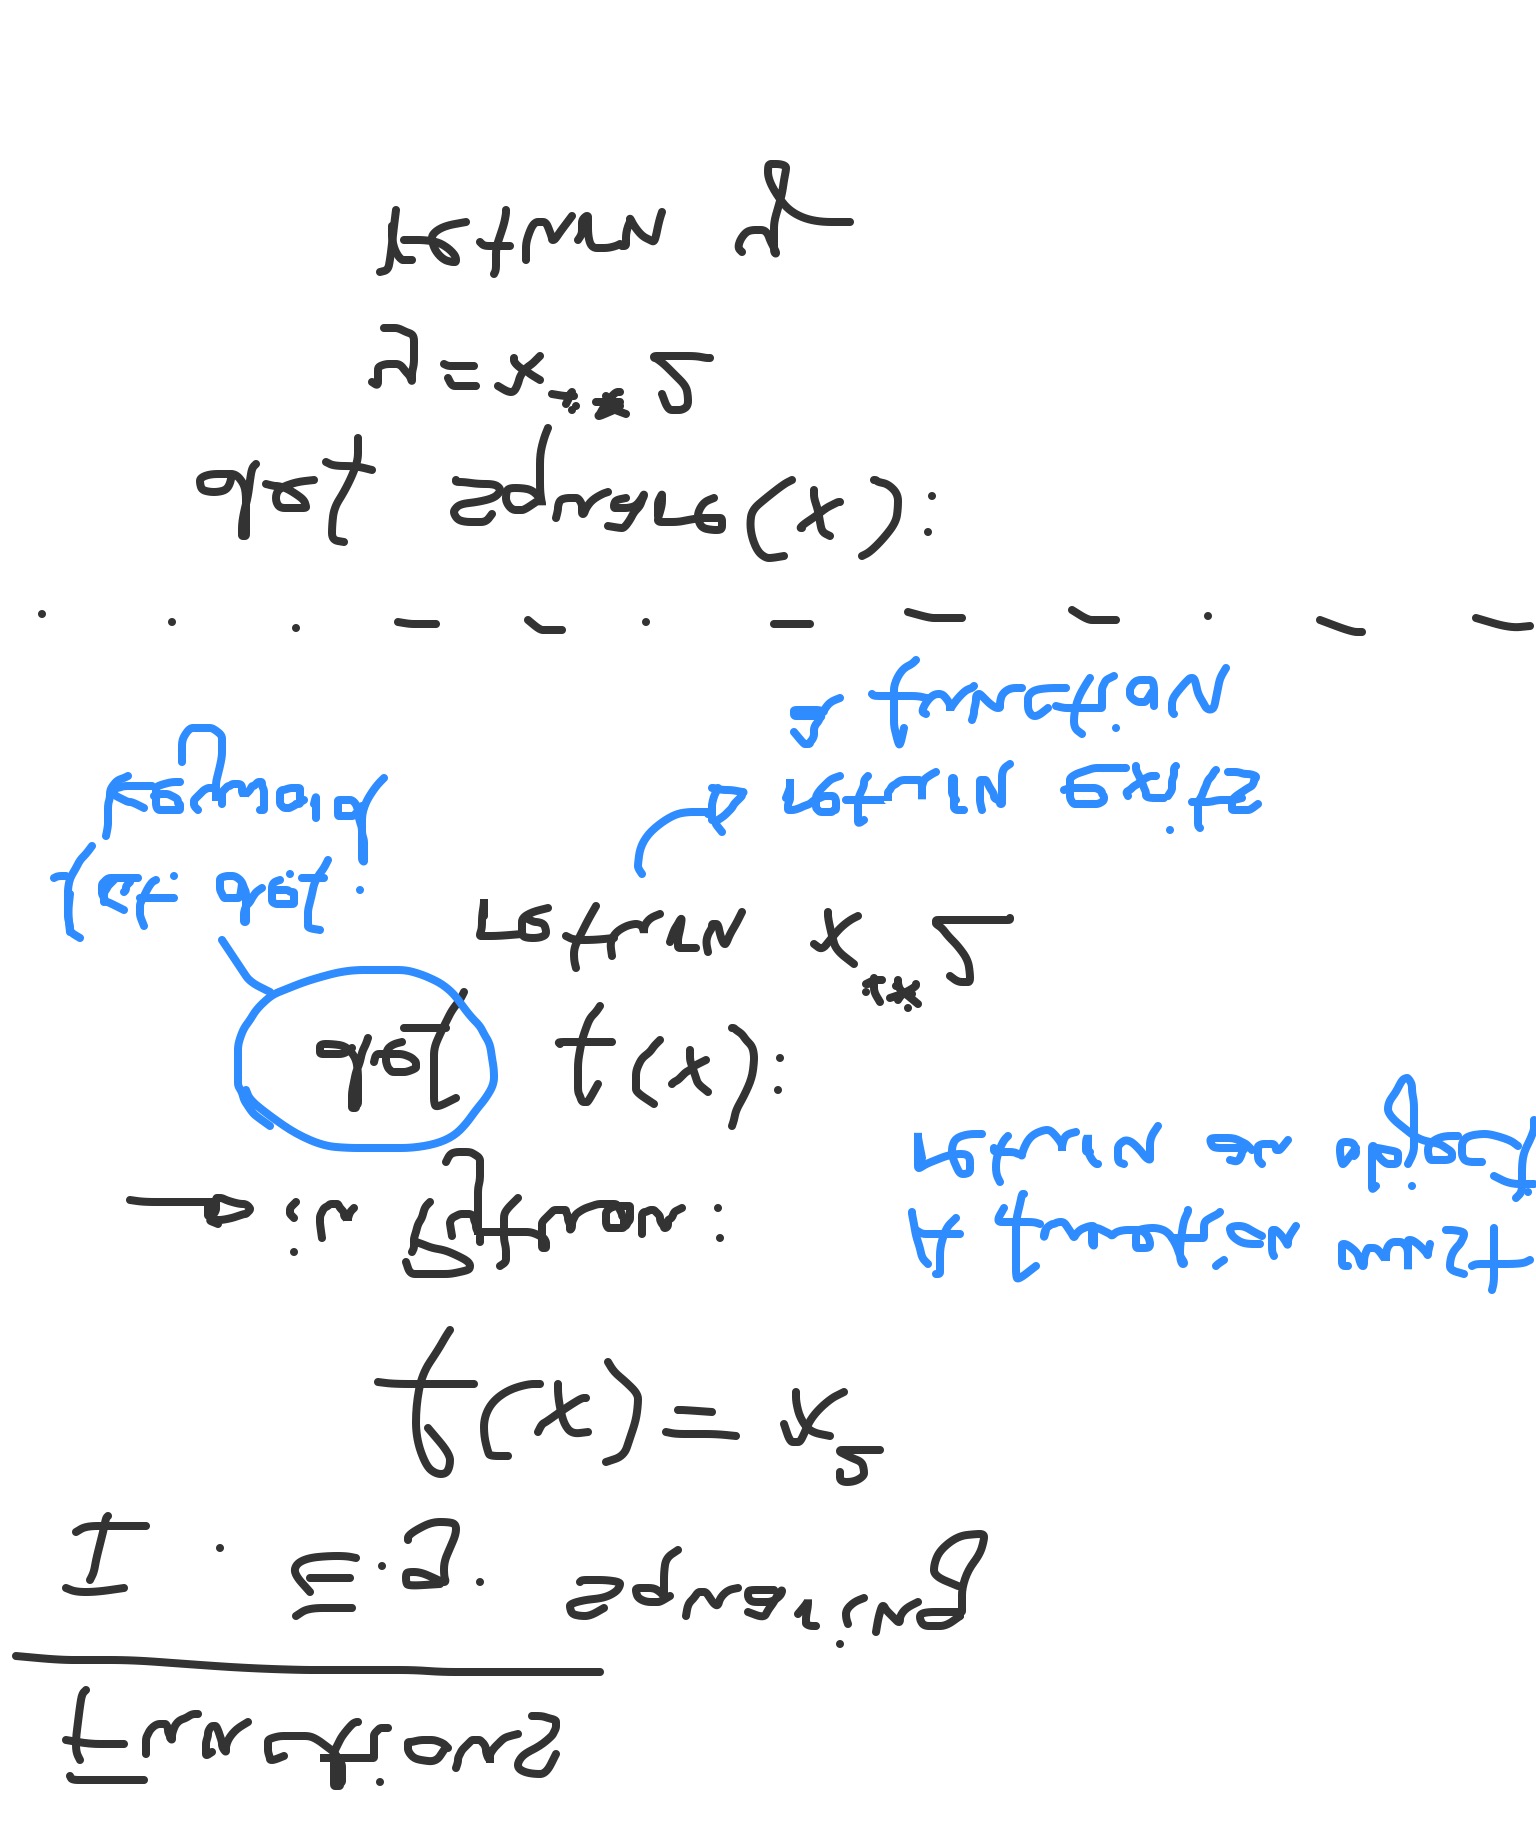 Functions
I. E.g. squaring
f(x) = x²
→ in Python:
A function must
return an object
def f(x):
return x**2
fct. def.
keyword
return exits
a function
def square(x):
y = x**2
return y